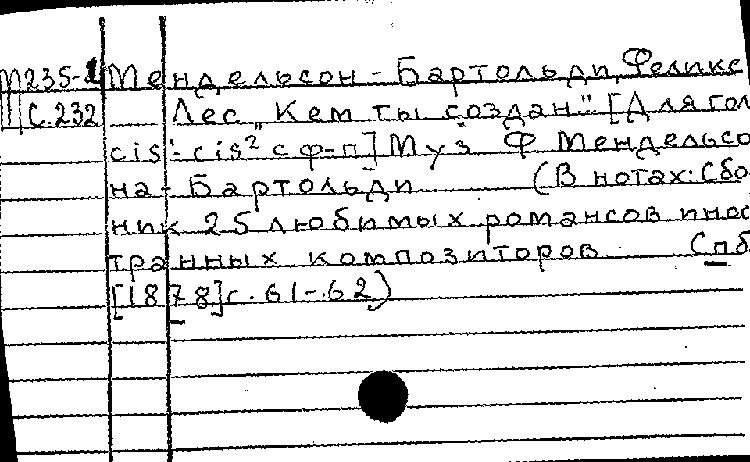 М235-1 Мендельсон-Бартольди, Феликс
С.232 Лес „Кем ты создан." [Для гол
cis¹-cis² с ф-п] Муз Ф Мендельсо
на-Бартольди (В нотах: Сбо
ник 25 любимых романсов инос
транных композиторов Спб
[1878] с. 61-62)